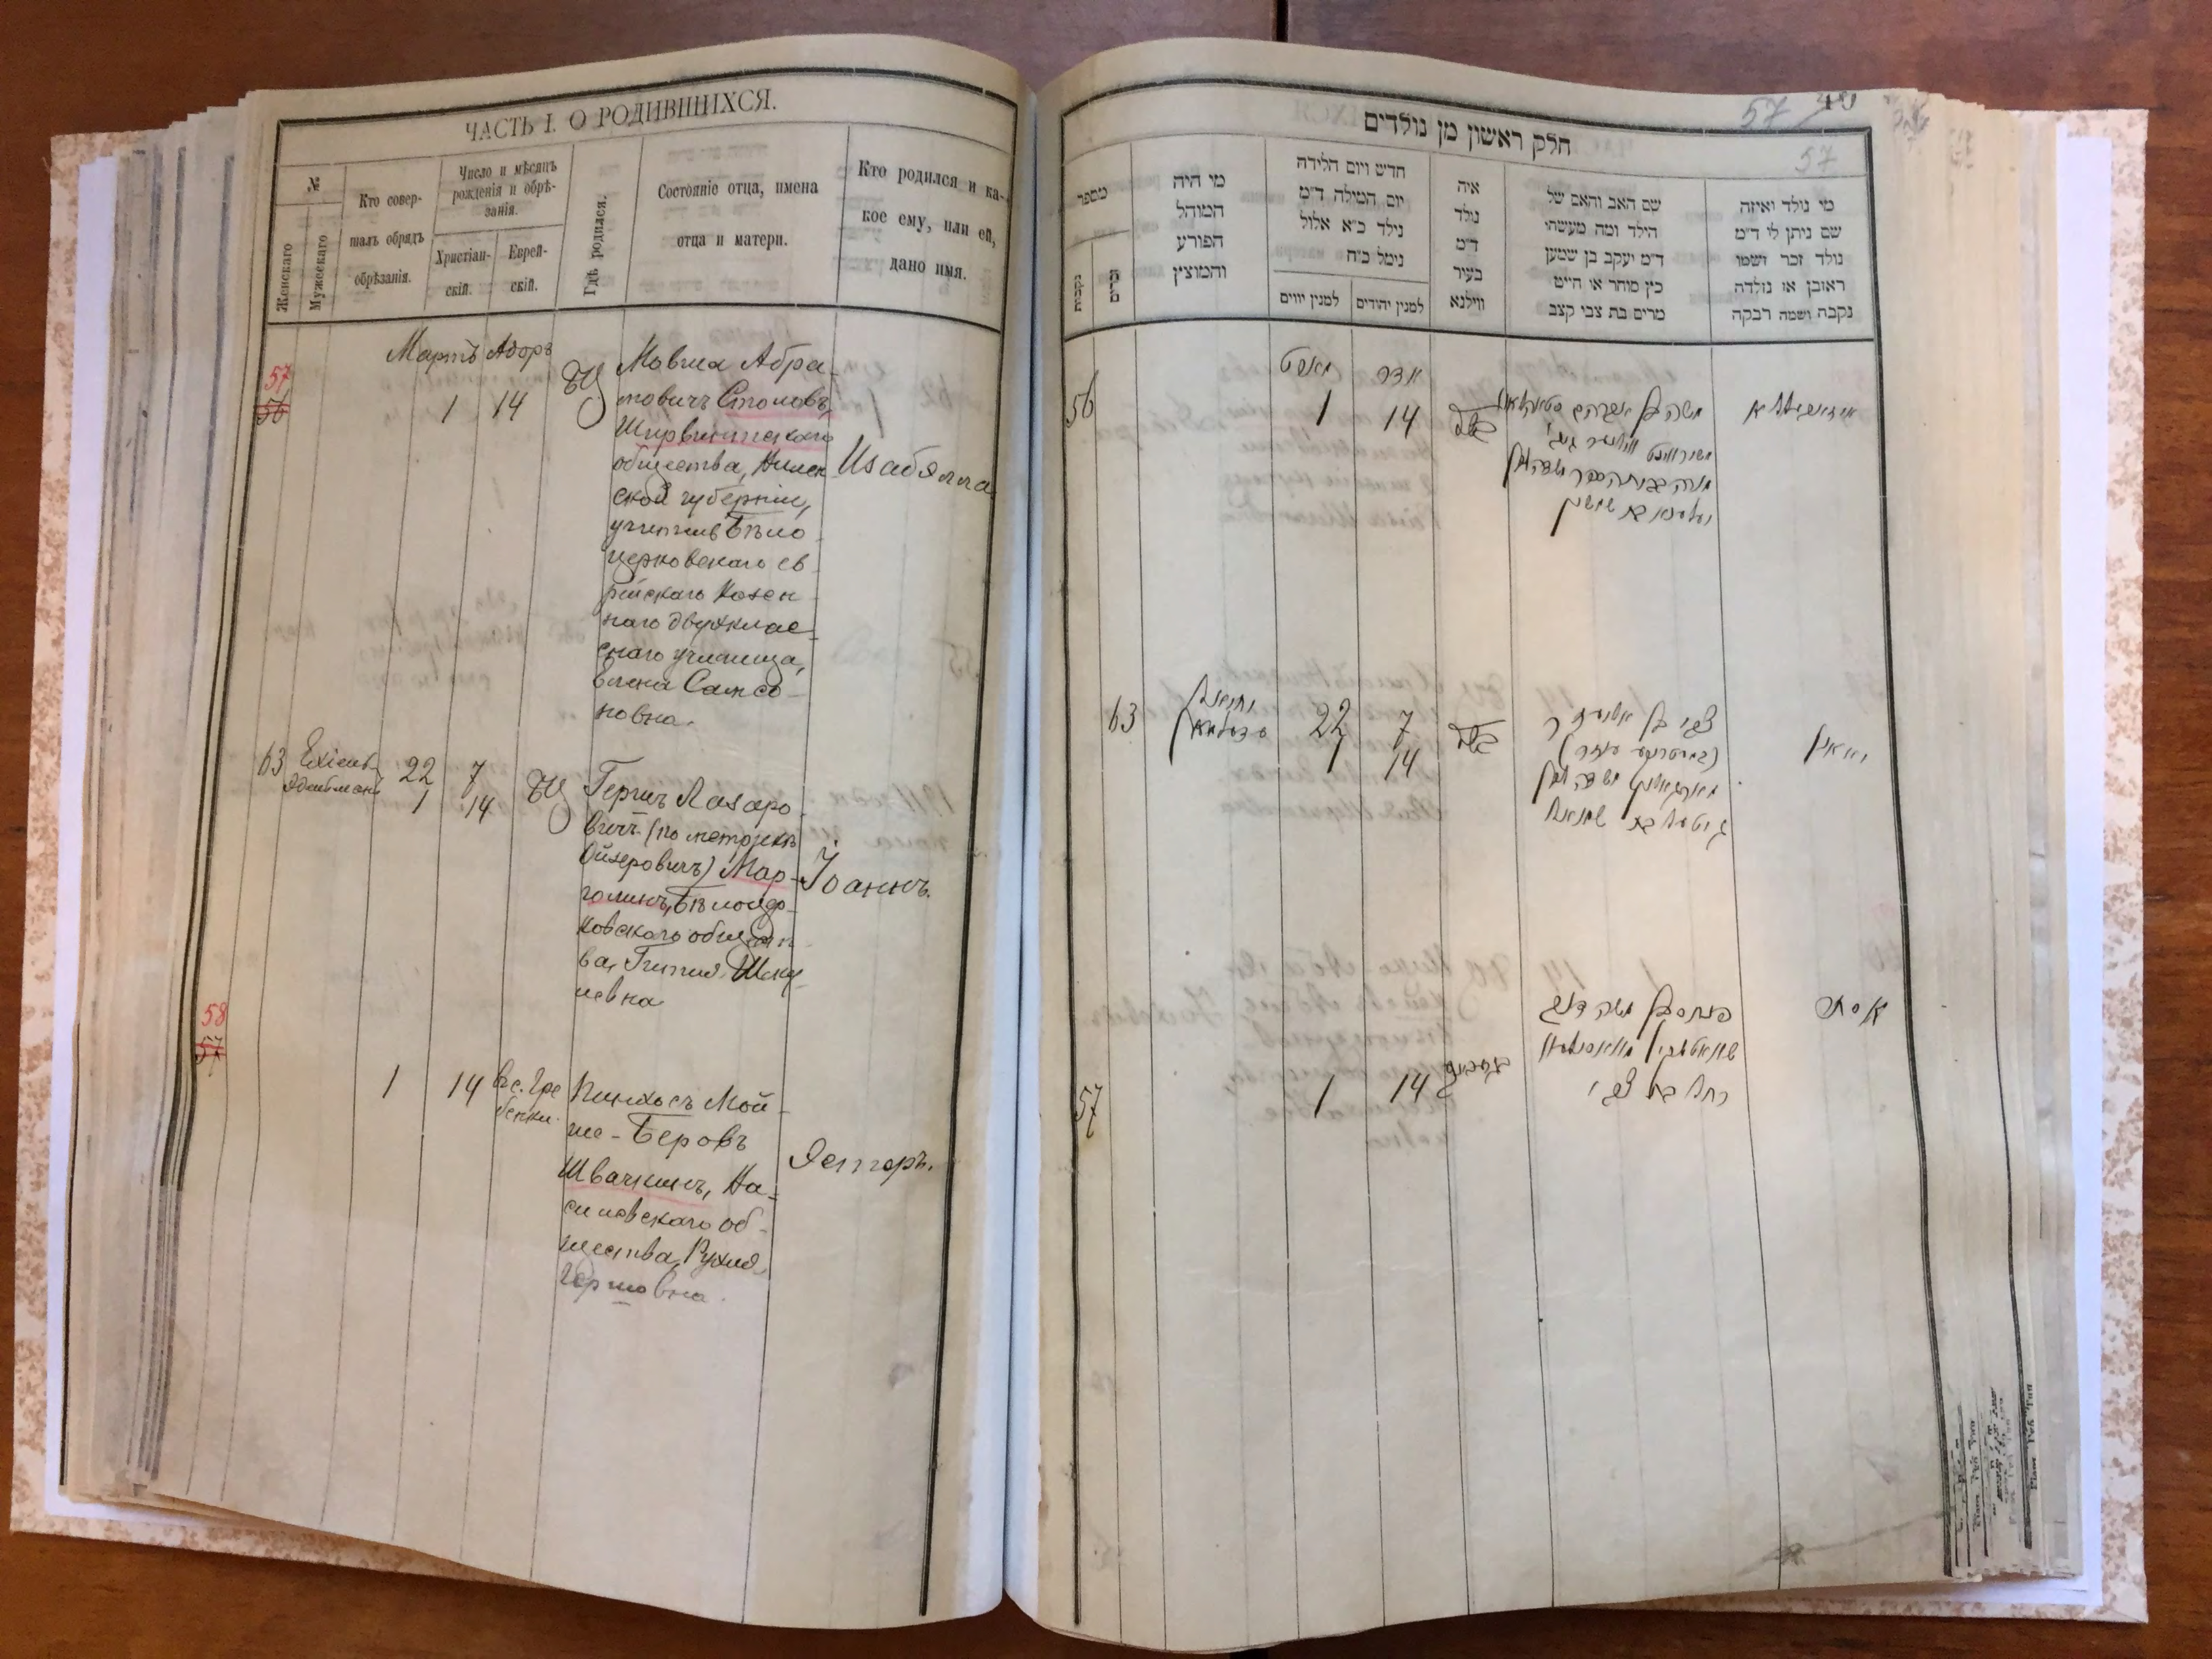 ЧАСТЬ I. О РОДИВШИХСЯ.
№
Женскаго
Мужескаго
Кто совер-
шалъ обрядъ
обрѣзанія.
Число и мѣсяцъ
рожденія и обрѣ-
занія.
Христіан-
скій.
Еврей-
скій.
Гдѣ родился.
Состояніе отца, имена
отца и матери.
Кто родился и ка-
кое ему, или ей,
дано имя.
Мартъ Адоръ
57
56
1 14
БЦ
Мовша Абра-
мовичъ Столовъ,
Ширвинтскаго
общества, Виленской
ской губерніи,
учитель Бѣло-
церковскаго ев-
рейскаго Казен-
наго двухклас-
снаго училища,
Елена Самсо-
новна.
Изабэлла
63 Ехіель
Эдельманъ
22 7
1 14
БЦ
Гершъ Лазаро-
вичъ (по метрикѣ
Ойзеровичъ) Мар-
голинъ, Бѣлоцер-
ковскаго общест-
ва, Гитля Шму-
левна
Іоаннъ.
58
57
1 14
въ с. Гре-
бенки.
Пинхосъ Мой-
ше-Беровъ
Швачкинъ, Ва-
сильевскаго об-
щества, Рухля
Гершовна.
Эстеръ.
57
57
חלק ראשון מן נולדים
מספר
נקבות
זכרים
מי היה
המוהל
הפורע
והמוצץ
חדש ויום הלידה
יום המילה ד״מ
נילד כ״א אלול
נימל כ״ח
למנין יווים
למנין יהודים
איה
נולד
ד״מ
בעיר
ווילנא
שם האב והאם של
הילד ומה מעשהי
ד״מ יעקב בן שמען
כץ סוחר או חייט
מרים בת צבי קצב
מי נולד ואיזה
שם ניתן לי ד״מ
נולד זכר ושמו
ראובן או נולדה
נקבה ושמה רבקה
מארט אדר
56
1 14
משה בן אברהם
63
22 7
1 14
צבי בן
יאאן
57
1 14
פנחס בן משה דוב
רחל בת צבי
אסתר